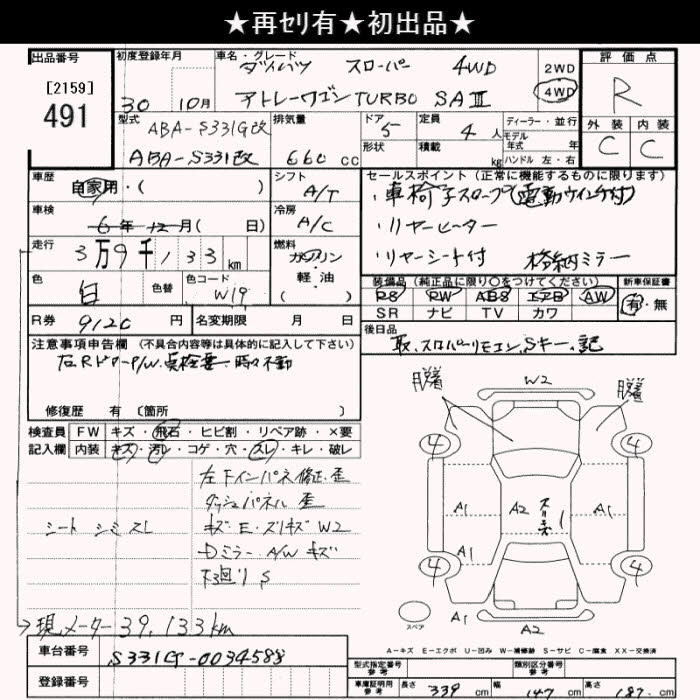 ★再セリ有★初出品★
出品番号
[2159]
491
初度登録年月
30 10月
車名・グレード
ダイハツ スローパー 4WD
アトレーワゴン TURBO SAⅢ
2WD
4WD
評価点
R
外装 内装
C C
型式
ABA-S331G改
ABA-S331改
排気量
660 cc
ドア 5
形状
定員 4 人
積載 kg
ディーラー・並行
モデル年式 年式
ハンドル 左・右
車歴
自家用・( )
シフト
A/T
車検
6年12月( 日)
冷房
A/C
走行
3万9千133 km
燃料
ガソリン
軽・油
( )
色
白
色替
色コード
W19
R券 9120 円
名変期限 月 日
セールスポイント(正常に機能するものに限ります)
・車椅子スロープ(電動ウインチ付)
・リヤーヒーター
・リヤーシート付 格納ミラー
装備品(純正品に限り○をつけてください)
PS PW ABS エアB AW
SR ナビ TV カワ
新車保証書
有・無
後日品
取、スロパーリモコン、Sキー、記
注意事項申告欄(不具合内容等は具体的に記入して下さい)
右RドアーP/W 点検要 時々不動
修復歴 有 〔箇所 〕
検査員記入欄
FW キズ・飛石・ヒビ割・リペア跡・×要
内装 キズ・汚レ・コゲ・穴・スレ・キレ・破レ
左下インパネ修正、歪
ダッシュパネル 歪
シート シミ スレ
キズ・E・ズリキズ W2
Dミラー A/W キズ
下廻り S
→現メーター39,133km
W2
脱着
脱着
4
4
A1
A2
スリキズ
A1
A1
4
4
スペア
A1
A2
A-キズ E-エクボ U-凹み W-補修跡 S-サビ C-腐食 XX-交換済
車台番号
S331G-0034588
登録番号
型式指定番号 参考
類別区分番号 参考
車庫証明用 参考
長さ 339 cm
幅 147 cm
高さ 187 cm